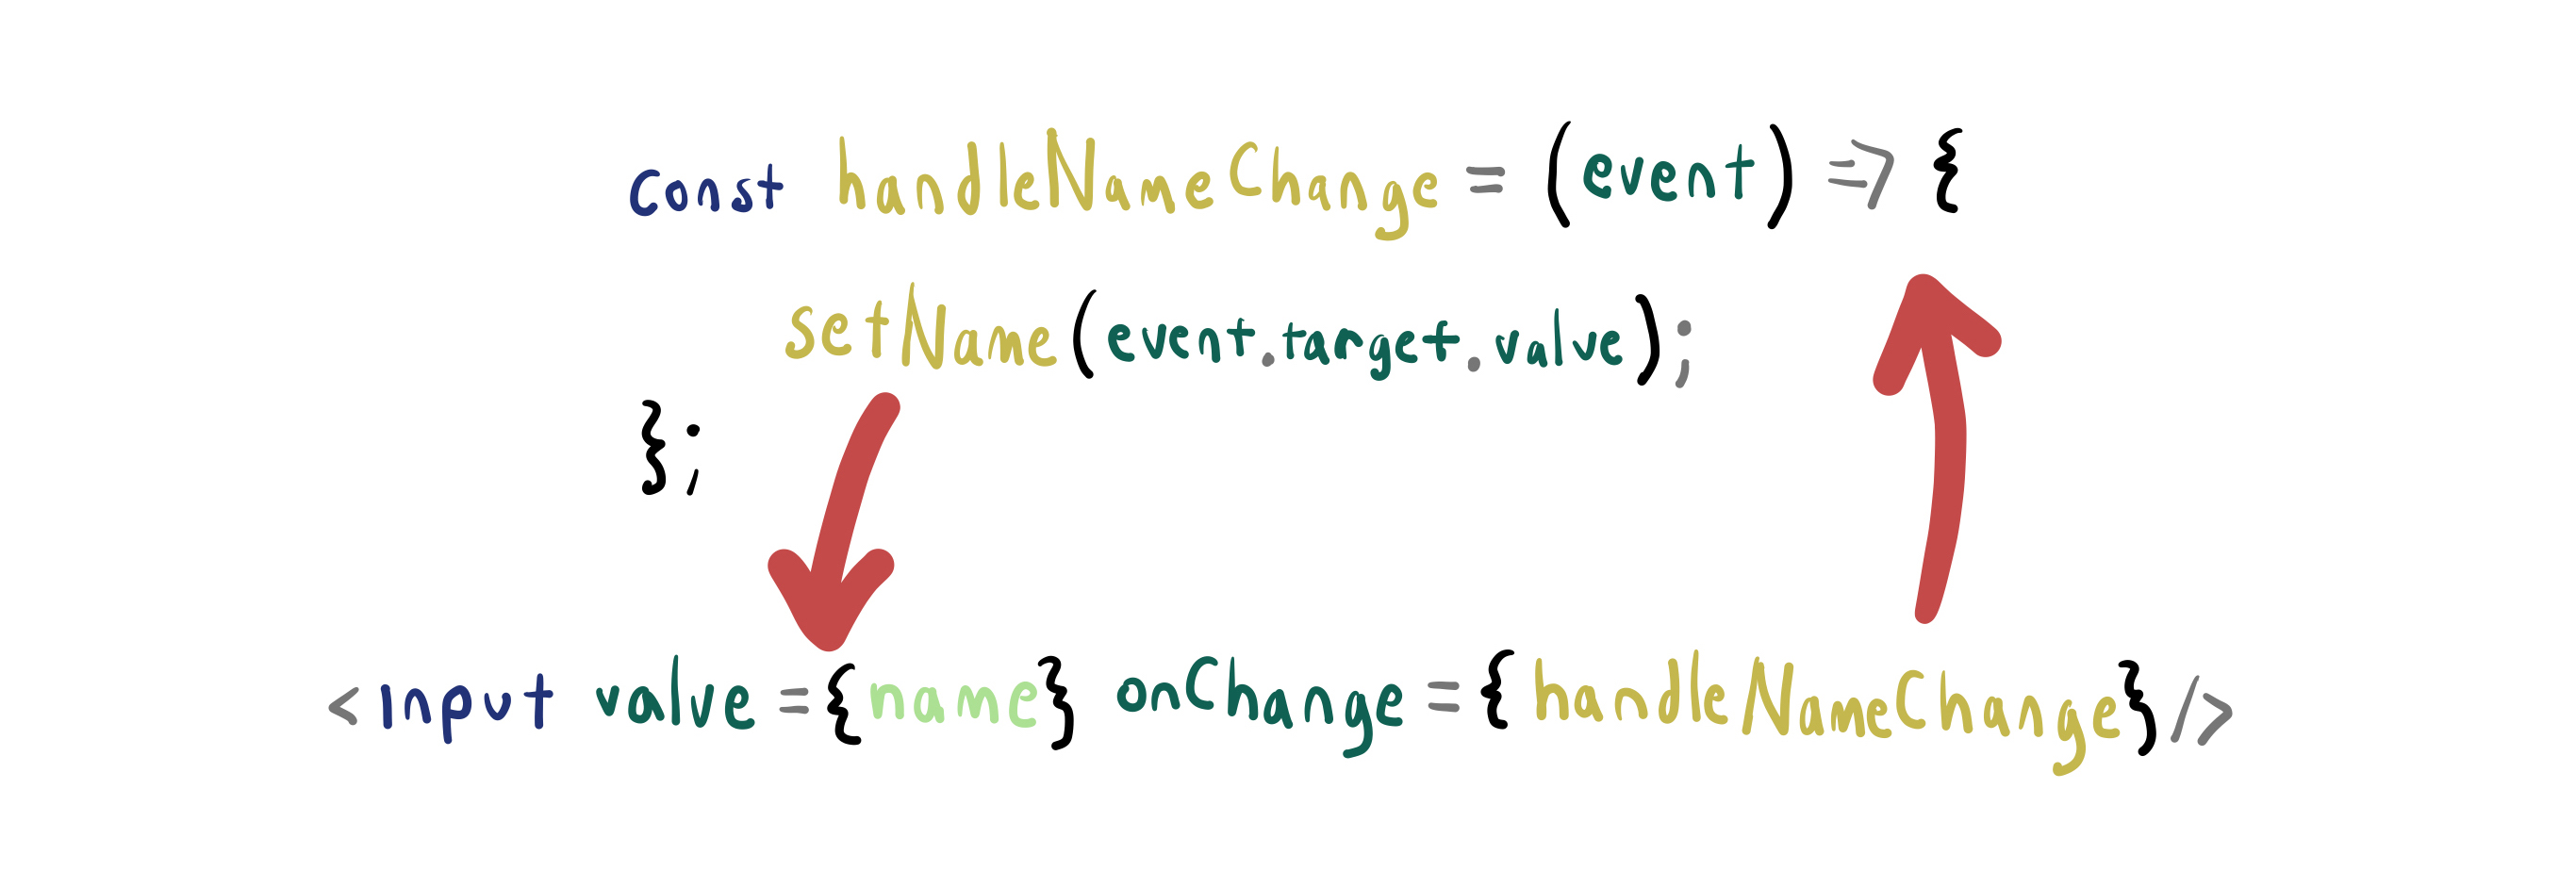 const handleNameChange = (event) => {
setName(event.target.value);
};
<input value={name} onChange={handleNameChange}/>